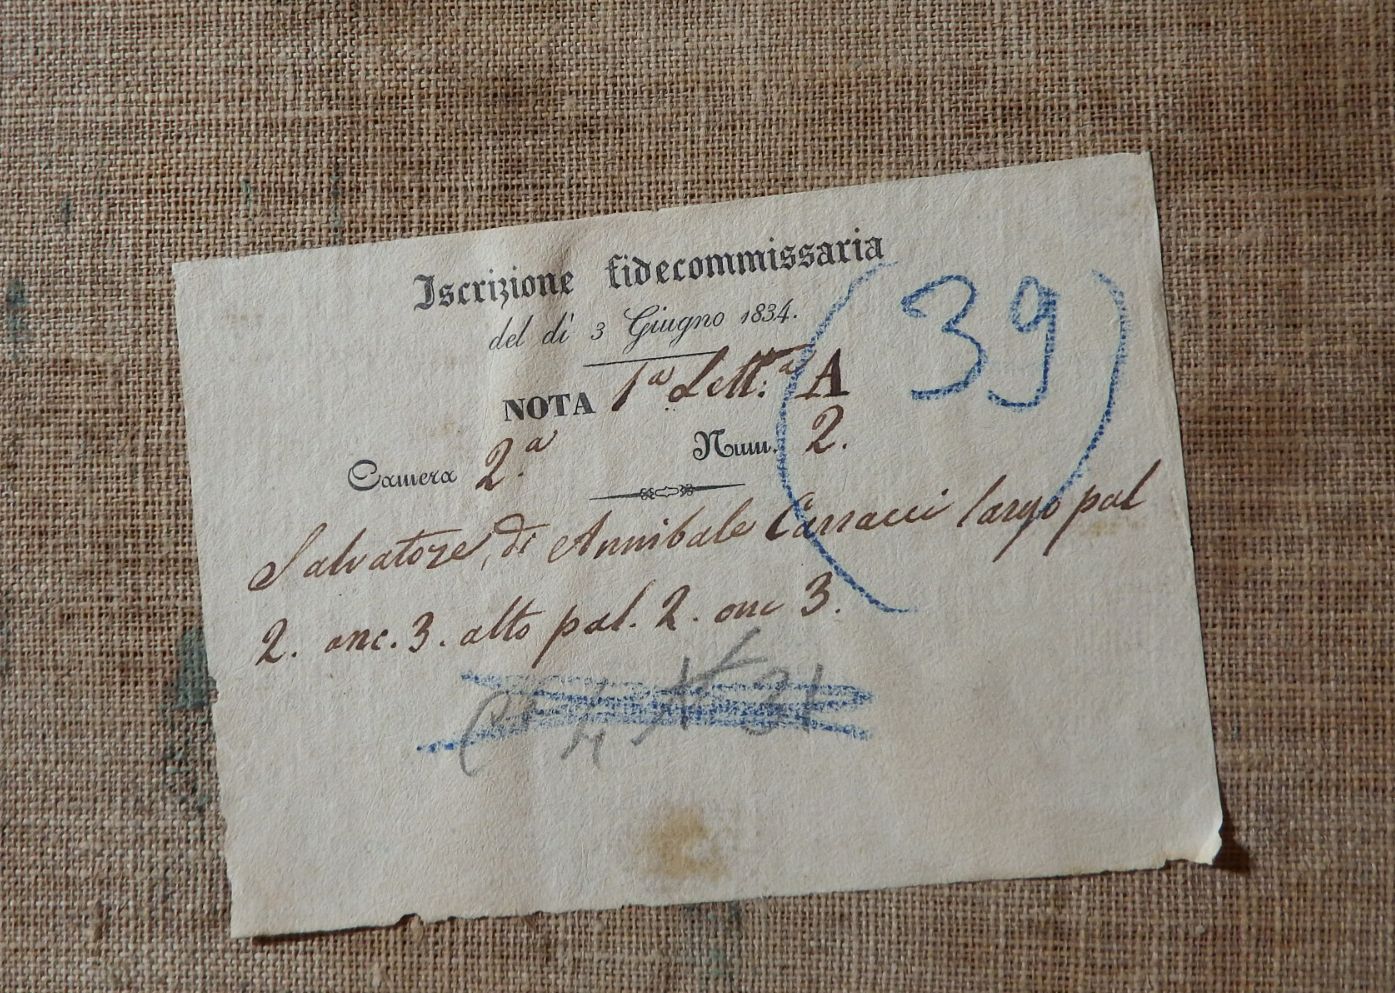 Iscrizione fidecommissaria
del dì 3 Giugno 1834.
(39)
NOTA 1ª Lett:ª A
Camera 2.ª Num. 2.
Salvatore, di Annibale Carracci largo pal
2. onc. 3. alto pal. 2. onc 3.
31